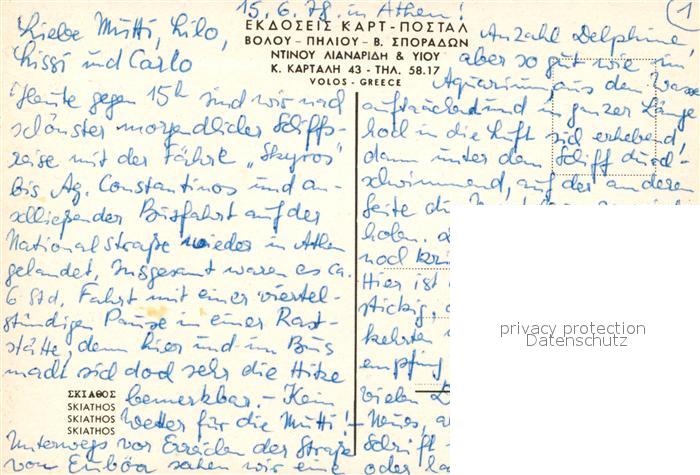 15.6.78. in Athen!
1
ΕΚΔΟΣΕΙΣ ΚΑΡΤ-ΠΟΣΤΑΛ
ΒΟΛΟΥ - ΠΗΛΙΟΥ - Β. ΣΠΟΡΑΔΩΝ
ΝΤΙΝΟΥ ΛΙΑΝΑΡΙΔΗ & ΥΙΟΥ
Κ. ΚΑΡΤΑΛΗ 43 - ΤΗΛ. 58.17
VOLOS - GREECE
Liebe Mutti, Lilo,
Lissi und Carlo
Heute gegen 15h sind wir nach
schönster morgendlicher Schiffs-
reise mit der Fähre "Skyros"
bis Ag. Constantinos und an-
schließender Busfahrt auf der
Nationalstraße wieder in Athen
gelandet, insgesamt waren es ca.
6 Std. Fahrt mit einer viertel-
stündigen Pause in einer Rast-
stätte, denn hier und im Bus
macht sich doch sehr die Hitze
bemerkbar. - Kein
Wetter für die Mutti! -
Unterwegs vor Erreichen der Straße
von Euböa sahen wir eine
ΣΚΙΑΘΟΣ
SKIATHOS
SKIATHOS
SKIATHOS
Anzahl Delphine,
aber so gut wie im
Aquarium aus dem Wasser
auftauchend und in ganzer Länge
hoch in die Luft sich erhebend,
dann unter dem Schiff durch-
schwimmend, auf der anderen
Seite
holen.
noch
Hier ist
stickig,
kehrten
empfing
vielen
Neues,
Schrift-
oder
privacy protection
Datenschutz